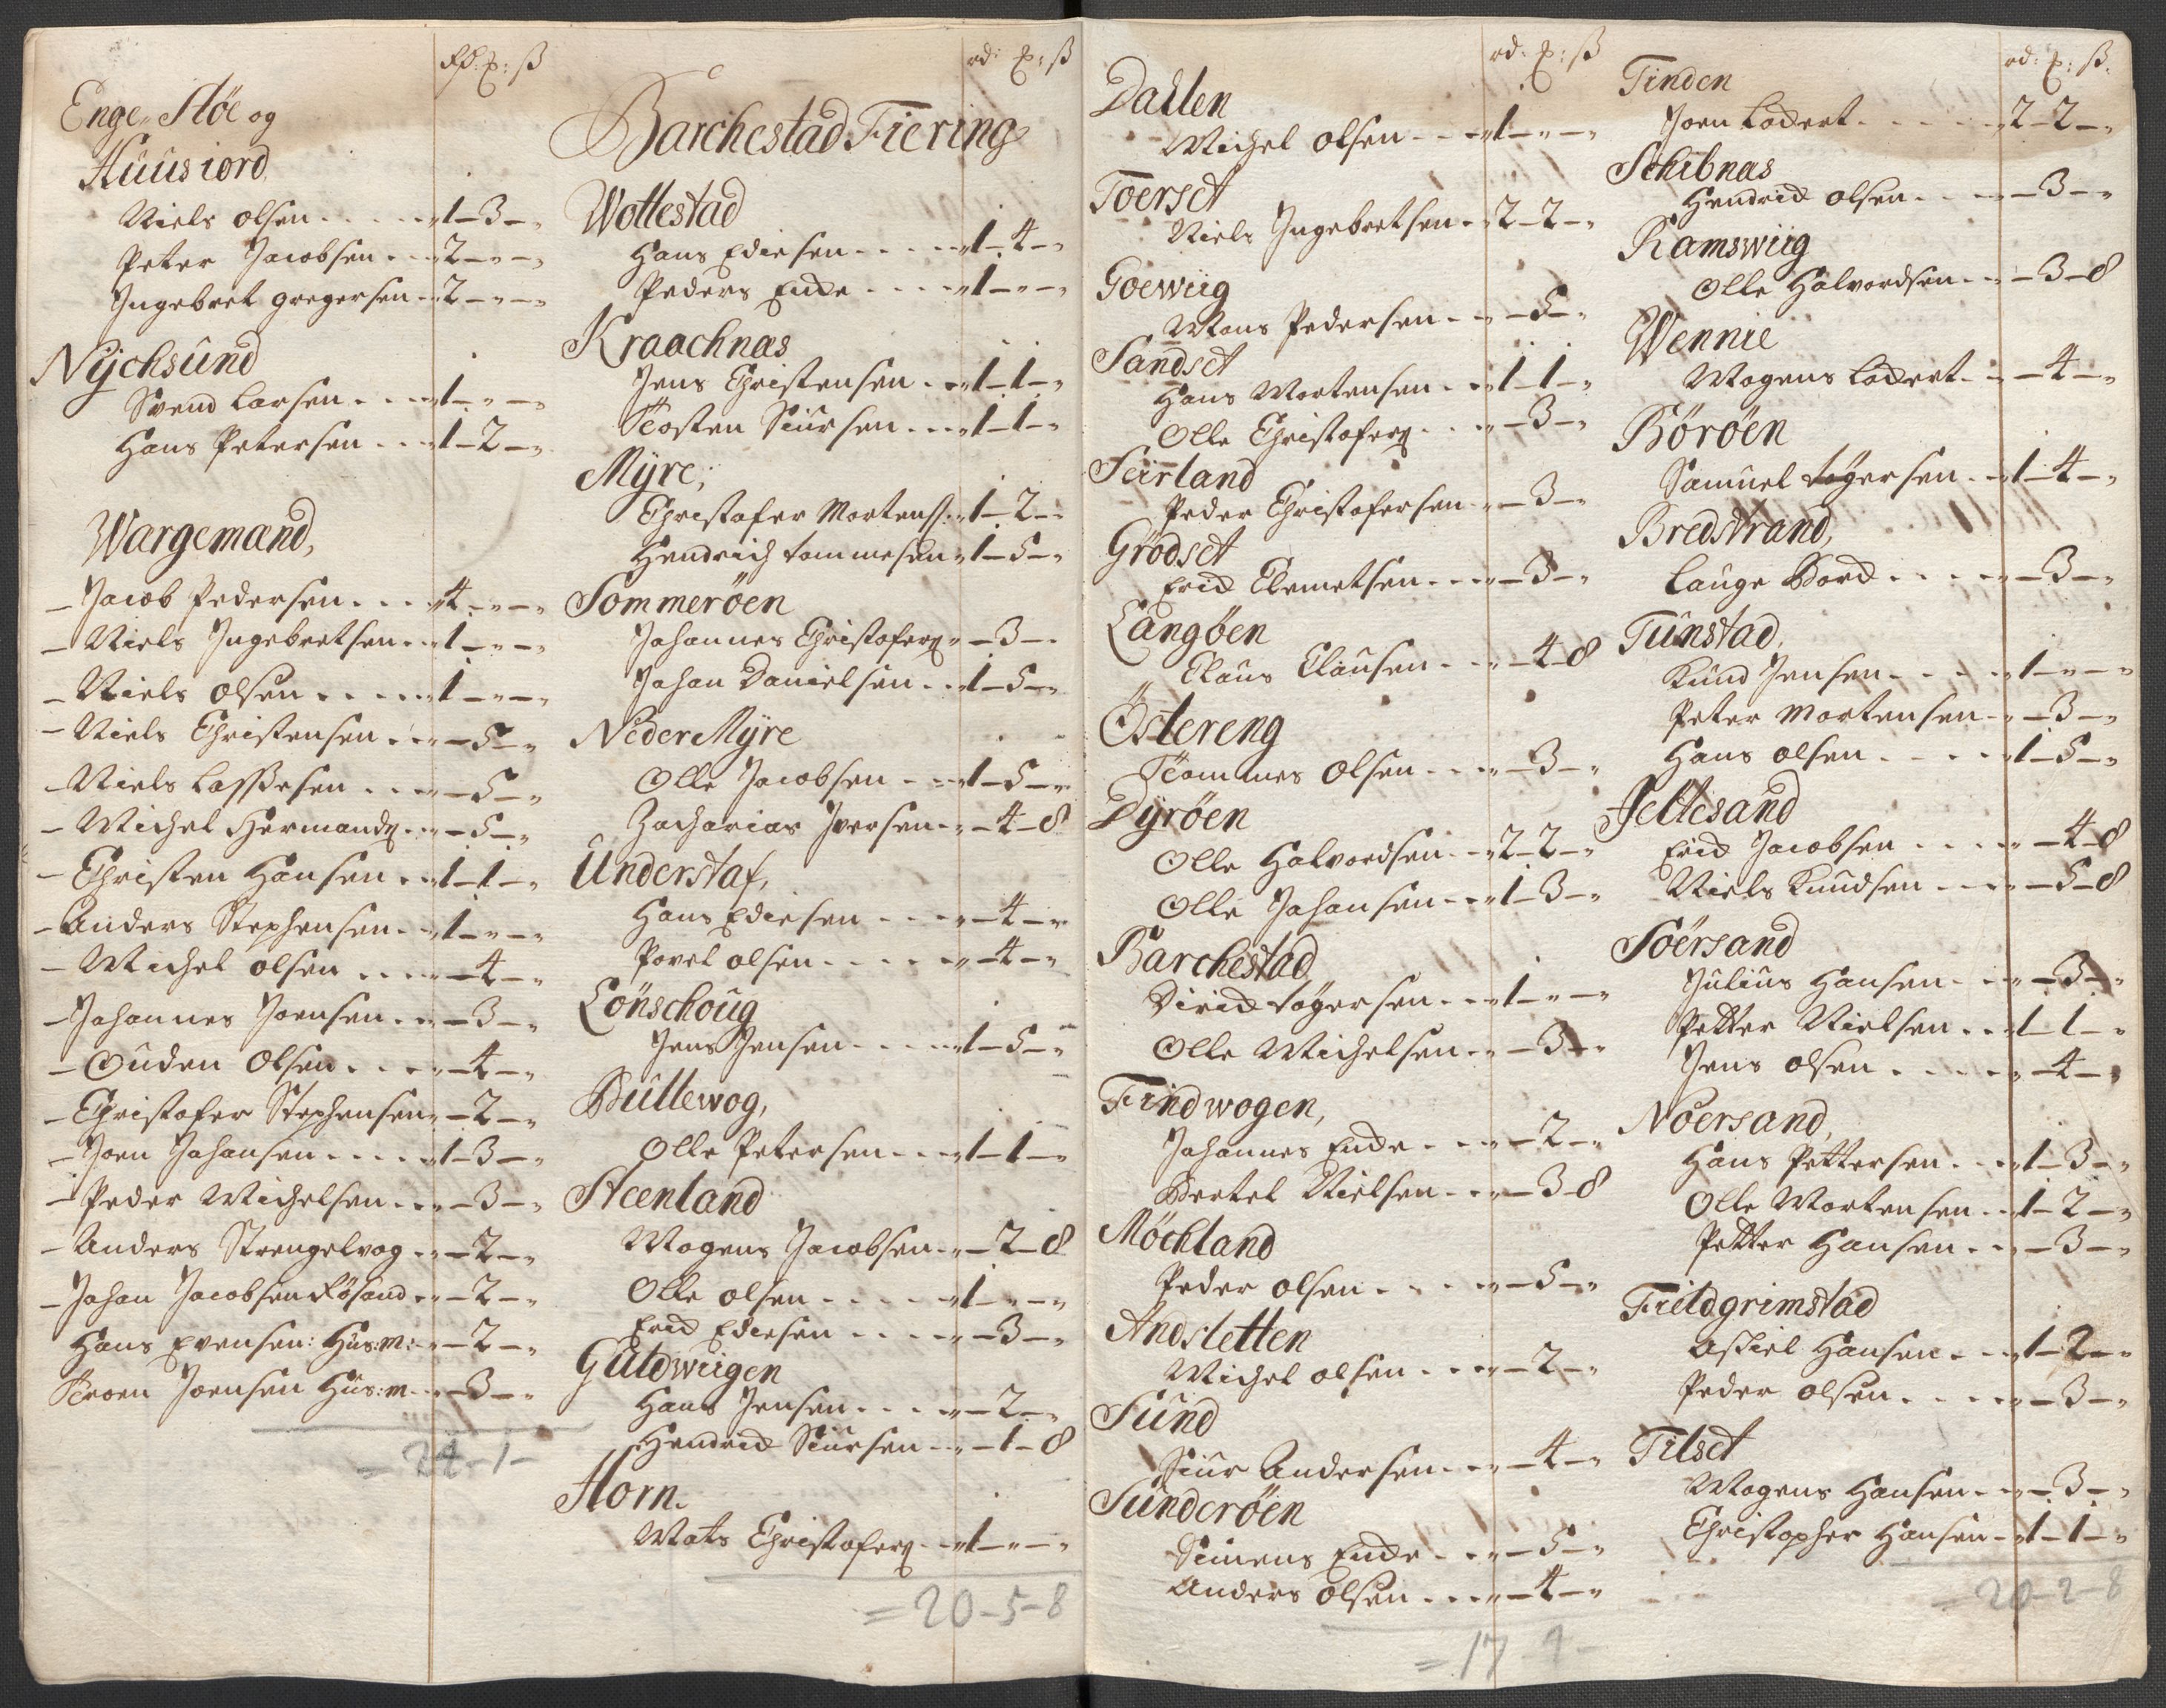 Rd: ℔: ß
Enge, Støe og
Huusiord
Niels Olsen . . . . . „1–3–„
Peter Jacobsen . . . „2–„–„
Ingebret gregersen . „2–„–„
Nÿchsund
Svend Larsen . . . . „1–„–„
Hans Petersen . . . „1–2–„
Wargemand,
– Jacob Pedersen . . . „4–„–„
– Niels Ingebretsen . . „1–„–„
– Niels Olsen . . . . . „1–„–„
– Niels Christensen . . „–5–„
– Niels Lassesen . . . „–5–„
– Michel Hermands . . „–5–„
– Christen Hansen . . „1–1–„
– Anders Stephensen . . „1–„–„
– Michel Olsen . . . . „–4–„
– Johannes Joensen . . „–3–„
– Ouden Olsen . . . . „–4–„
– Christofer Stephensen „–2–„
– Joen Johansen . . . . „1–3–„
– Peder Michelsen . . . „–3–„
– Anders Strengelvog . . „–2–„
– Johan Jacobsen Røsand . „–2–„
Hans Evensen: Hus:m: „–2–„
Joensen Hus:m . „–3–„
= 24–1–
rd: ℔: ß
Barchestad Fiering
Wottestad
Hans Ediesen . . . . . „1–4–„
Peders Enche . . . . „1–„–„
Kraachnæs
Jens Christensen . . „1–1–„
Tosten Siursen . . . „1–1–„
Mÿre;
Christofer Mortens: „1–2–„
Hendrich Tommesen „1–5–„
Sommerøen
Johannes Christofers „–3–„
Johan Danielsen . . „1–5–„
Neder Mÿre
Olle Jacobsen . . . „1–5–„
Zacharias Iversen . . „–4–8
Understaf,
Hans Ediesen . . . . „–4–„
Povel Olsen . . . . . „–4–„
Lønschoug
Jens Jensen . . . . . „1–5–„
Bullewog,
Olle Petersen . . . „1–1–„
Steenland
Mogens Jacobsen . . „–2–8
Olle Olsen . . . . . „1–„–„
Erich Ediesen . . . . „–3–„
Guldwiigen
Hans Jensen . . . . „–2–„
Hendrich Siursen . . „–1–8
Horn.
Mats Christofers . . „1–„–„
= 20–5–8
rd: ℔: ß
Dahlen
Michel Olsen . . . „1–„–„
Toerset
Niels Ingebretsen . . „2–2–„
Goewiig
Mons Pedersen . . „–5–„
Sandset
Hans Mortensen . . „1–1–„
Olle Christofers . . . „–3–„
Seirland
Peder Christofersen . „–3–„
Grødset
Erich Clemetsen . . . „–3–„
Langøen
Claus Clausen . . . „–4–8
Østereng
Tommes Olsen . . . . „–3–„
Dÿrøen
Olle Halvordsen . . „2–2–„
Olle Johansen . . . „1–3–„
Barchestad
Dirich Tøgersen . . . „1–„–„
Olle Michelsen . . . „–3–„
Findwogen,
Johannes Enche . . . „–2–„
Bertel Nielsen . . . „–3–8
Møchland
Peder Olsen . . . . . „–5–„
Andsletten
Michel Olsen . . . . „–2–„
Sund
Siur Andersen . . . „–4–„
Sunderøen
Simens Enche . . . „–5–„
Anders Olsen . . . . „–4–„
= 17–1–
rd: ℔: ß.
Tinden
Joen Lochert . . . . . „2–2–„
Schibnæs
Hendrich Olsen . . . „–3–„
Ramswiig
Olle Halvordsen . . „–3–8
Wennie
Mogens Lochert . . „–4–„
Børøen
Samuel Tøgersen . . „1–4–„
Bredstrand,
Lauge Bord . . . . „–3–„
Tunstad,
Knud Jensen . . . . „1–„–„
Peter Mortensen . . „–3–„
Hans Olsen . . . . . „1–5–„
Jeltesand
Erich Jacobsen . . . . „–4–8
Niels Knudsen . . . „–5–8
Søersand
Julius Hansen . . . „–3–„
Petter Nielsen . . „1–1–„
Jens Olsen . . . . . „–4–„
Noersand,
Hans Pettersen . . . „1–3–„
Olle Mortensen . . „1–2–„
Petter Hansen . . . „–3–„
Fritdgrimstad
Askiel Hansen . . . „1–2–„
Peder Olsen . . . . . „–3–„
Tilset
Mogens Hansen . . „–3–„
Christopher Hansen . „1–1–„
= 20–2–8